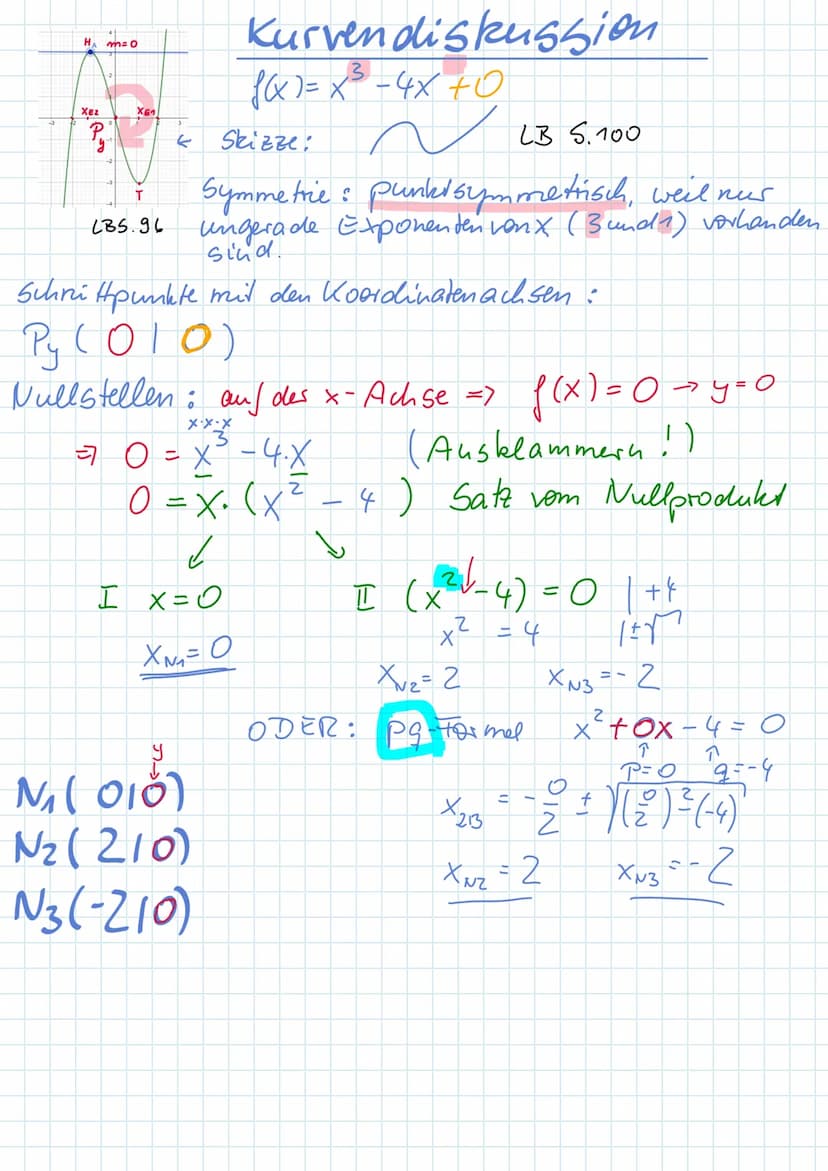 Kurvendiskussion
f(x) = x³ - 4x + 0
H m=0
x_E2 x_E1
Py
T
LB S. 96
Skizze: LB S. 100
Symmetrie: punktsymmetrisch, weil nur
ungerade Exponenten von x (3 und 1) vorhanden
sind.
Schnittpunkte mit den Koordinatenachsen:
Py ( 0 | 0 )
Nullstellen: auf der x-Achse => f(x) = 0 → y = 0
x·x·x
=> 0 = x³ - 4·x (Ausklammern!)
0 = x·(x² - 4) Satz vom Nullprodukt
I x = 0 II (x² - 4) = 0 | +4
x² = 4 | ±√
x_N1 = 0
x_N2 = 2 x_N3 = -2
ODER: pq-Formel x² + 0x - 4 = 0
p = 0 q = -4
x_2/3 = -0/2 ± √((0/2)² - (-4))
x_N2 = 2 x_N3 = -2
y
N1 ( 0 | 0 )
N2 ( 2 | 0 )
N3 ( -2 | 0 )